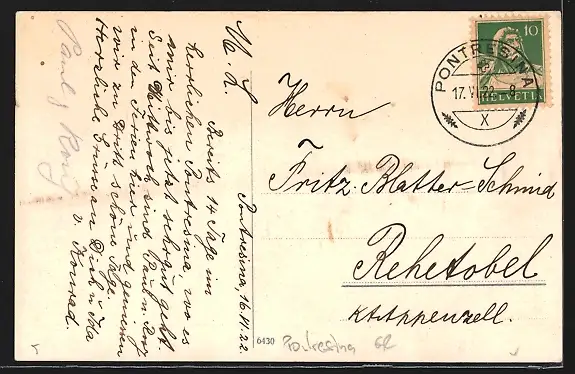 Pontresina, 16.VI.22.
M. L.
Bereits 14 Tage im
herrlichen Pontresina, wo es
mir bis jetzt sehr gut geht.
Seit Mittwoch sind Paul u. Rosy
in den Ferien hier und geniessen
wir zu Dritt schöne Tage.
Herzliche Grüsse an Dich u. Ida
v. Konrad.
Paul & Rosy
Herrn
Fritz Blatter-Schmid
Rehetobel
Kt. Appenzell.
10
HELVETIA
PONTRESINA
17.VI.22. 8
X
6430
Pontresina GR